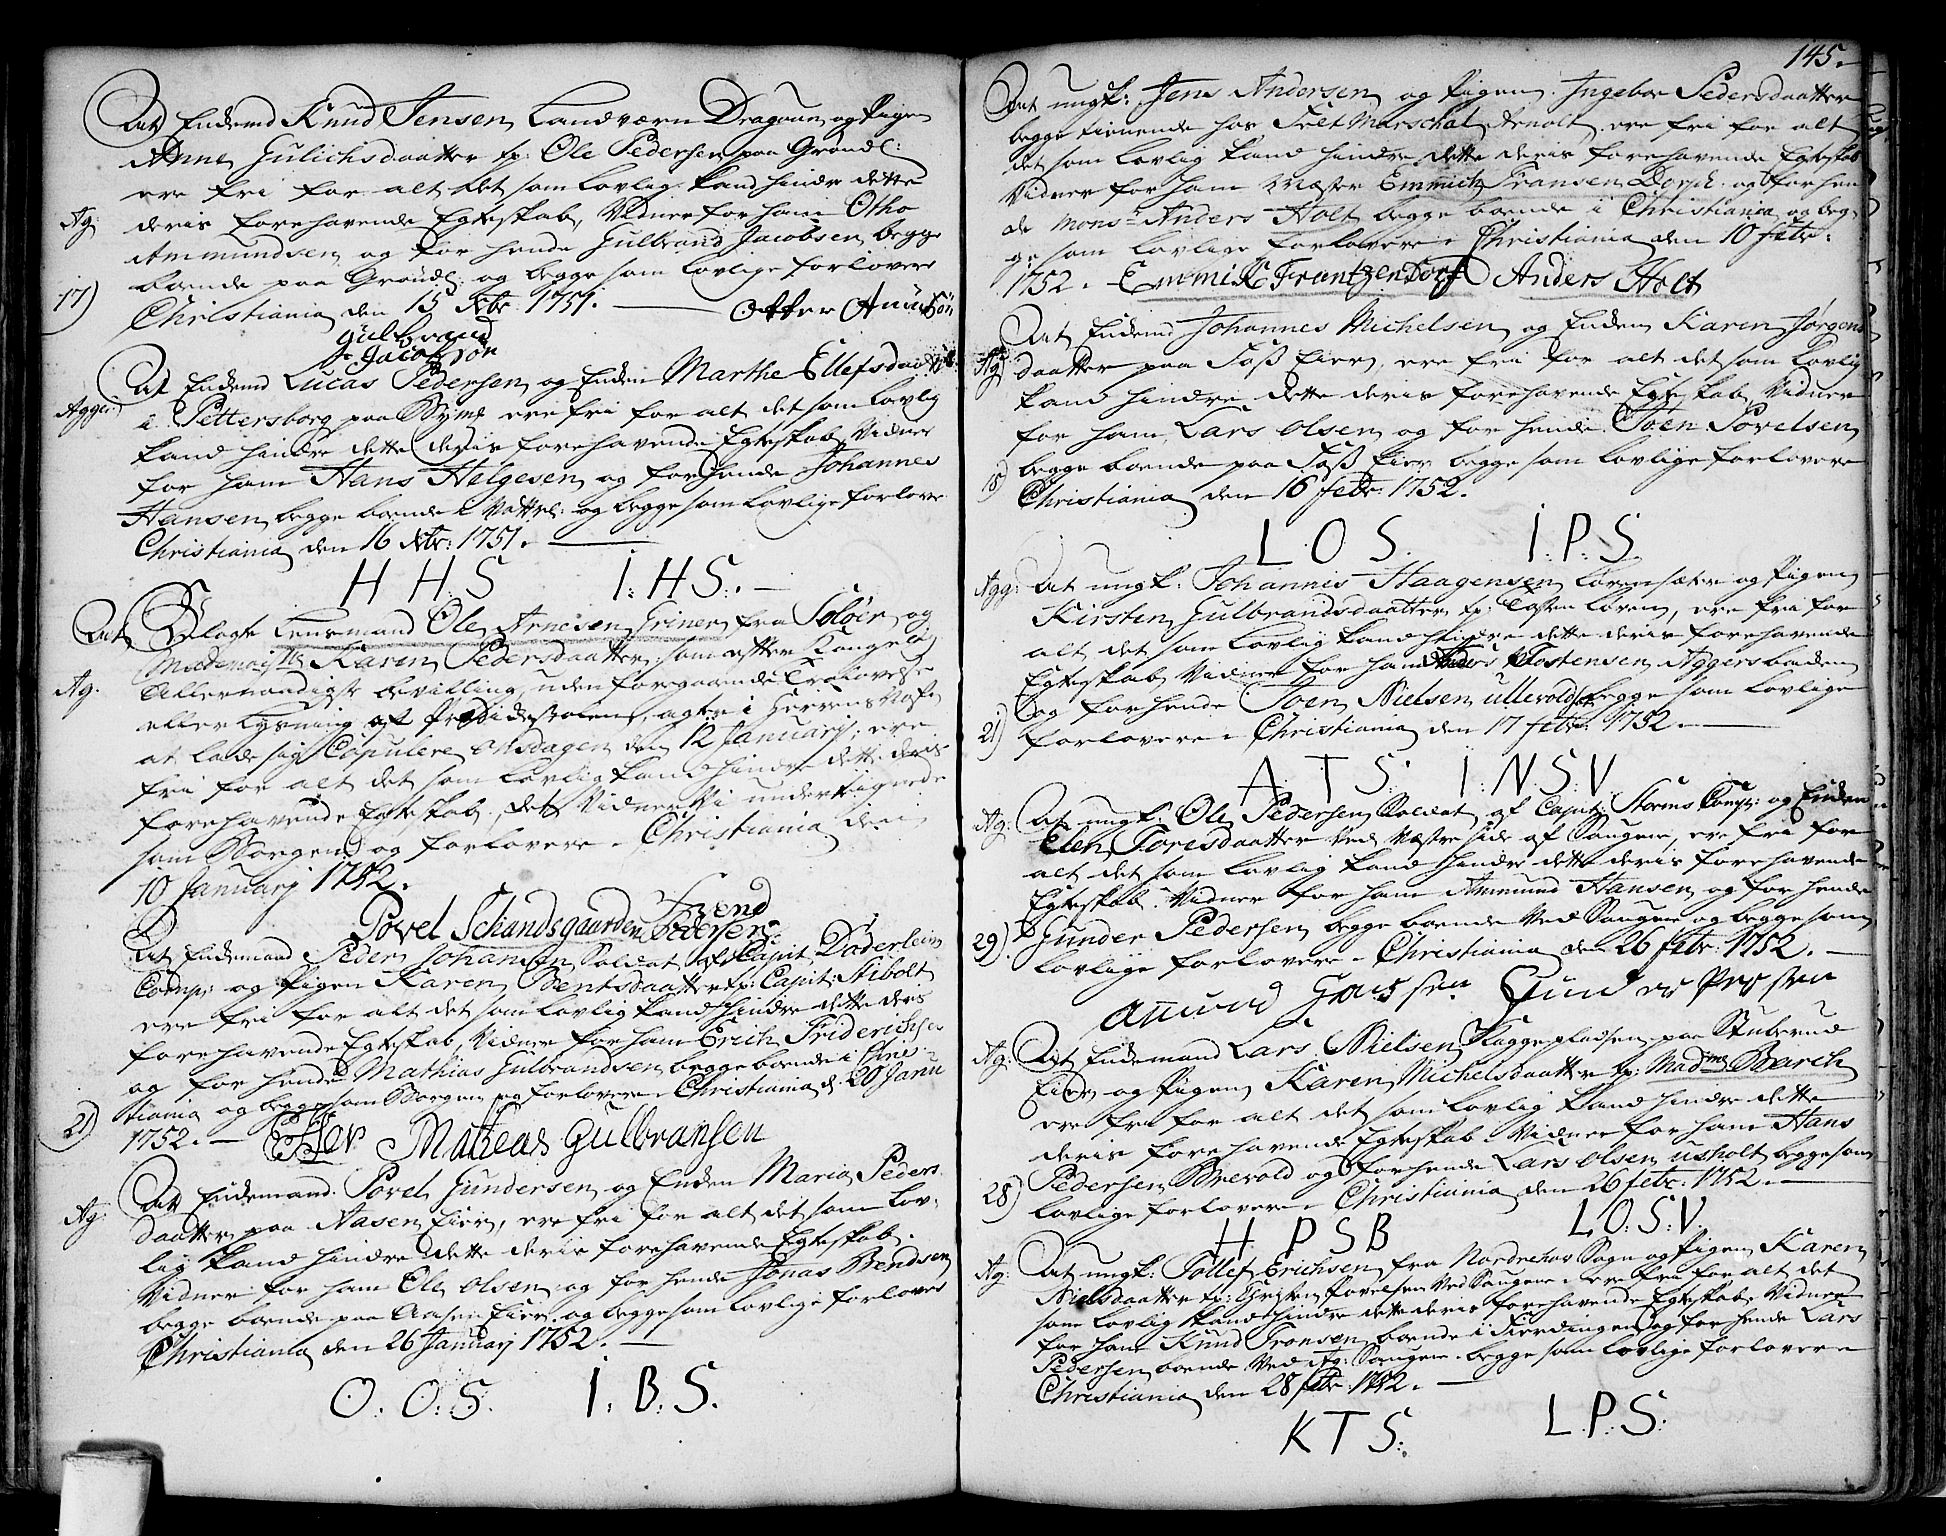 At Enckemd Knud Jensen Landværn Dragoun og Pigen
Anne Gulichsdaatter tp: Ole Pedersen paa Grøndl:
ere fri for alt det som lovlig kand hindre dette
Ag: deris forehavende Egteskab, Vidner for ham Otho
Ammundsen og for hende Gulbrand Jacobsen begge
boende paa Grøndl: og begge som lovlige forlovere
17) Christiania den 15 Xbr 1751. Otter Amundsøn
Gulbrand
Jacobsøn
At Enckemd Lucas Pedersen og Encken Marthe Ellefsdaatter
Agger: i Pettersborg paa Bÿmk ere fri for alt det som lovlig
kand hindre dette deris forehavende Egteskab, Vidner
for ham Hans Helgesen og for hende Johannes
Hansen begge boende i Vattrl: og begge som lovlige forlovere
Christiania den 16 Xbr: 1751.
H H S I: H S:
At Velagte Lensmand Ole Arnesen Griner fra Soløer og
Mademoiselle Karen Pedersdaatter, som efter Kongelig
Ag: Allernaadigste bevilling, uden foregaaende Trolovelse
eller Lysning af Prædickestolen, agter i Herrens Nafn
at lade sig Copulere onsdagen den 12 Januarij, ere
fri for alt det som lovlig kand hindre dette deris
forehavende Egteskab, det Vidner Vi undertegnede
som Borgen og forlovere. Christiania den
10 Januarj 1752.
Povel Schandsgaarden Svend
Pedersen
At Enckemand Peder Johansen Soldat af Capit: Döderleins
Comp: og Pigen Karen Bentsdaatter tp: Capit: Stibolt
ere fri for alt det som lovlig kand hindre dette deris
forehavende Egteskab, Vidner for ham Erich Friderichsen
og for hende Mathias Gulbrandsen begge boende i Chris-
2) tiania og begge som Borgen og forlovere Christiania d. 20 Janu
1752. Matheas Gulbransen
At Enckemand Povel Gundersen og Encken Maria Peders
Ag: daatter paa Aasen Eier, ere fri for alt det som lov-
lig kand hindre dette deris forehavende Egteskab.
Vidner for ham Ole Olsen og for hende Jonas Bendsen
begge boende paa Aasen Eier og begge som lovlige forlover
Christiania den 26 Januarj 1752.
O. O. S. I. B. S.
145.
At ungk: Jens Andersen og Pigen Ingebor Pedersdaatter
begge tienende hos Felt Marschal Arnolt ere fri for alt
det som lovlig kand hindre dette deris forehavende Egteskab
Vidner for ham Mæster Emmich Fransen Dorph og for hen
de Monsr Anders Holt begge boende i Christiania og beg-
ge som lovlige forlovere Christiania den 10 febr:
1752. Emmik Frantzen Dorf Anders Holt
At Enckemd Johannes Michelsen og Encken Karen Jørgens
Ag: daatter paa Foss Eier, ere fri for alt det som lovlig
kand hindre dette deris forehavende Egteskab, Vidner
for ham Lars Olsen og for hende Joen Povelsen
begge boende paa Foss Eier begge som lovlige forlovere
Christiania den 16 febr: 1752.
L O S. I: P: S
Agg: At ungk: Johannis Haagensen Lørensæter og Pigen
Kirsten Gulbrandsdaatter tp: Tosten Løren, ere fri for
alt det som lovlig kand hindre dette deris forehavende
Egteskab Vidner for ham Anders Tostensen Aggersbaden
og for hende Joen Nielsen Ullevold begge som lovlige
21) forlovere Christiania den 17 febr: 1752.
A: T S: I: N. S: V
Ag: At ungk: Ole Pedersen Soldat af Capit: Storms Comp: og Encken
Elen Toresdaatter Ved Væstre side af Saugene, ere fri for
alt det som lovlig kand hindre dette deris forehavende
Egteskab. Vidner for ham Ammund Hansen og for hende
29) Gunder Pedersen begge boende Ved Saugene og begge som
lovlige forlovere Christiania den 26 febr: 1752.
Amund Hanssen Gunder
Ag: At Enckemand Lars Nielsen Kaggepladsen paa Stuberud
Eier og Pigen Karen Michelsdaatter tp: Madme Barch
ere fri for alt det som lovlig kand hindre dette
deris forehavende Egteskab Vidner for ham Hans
Pedersen Brevold og for hende Lars Olsen usholt begge som
28) lovlige forlovere Christiania den 26 febr: 1752.
H P S B L: O: S: V.
Ag: At ungk: Tollef Erichsen fra Nordrehov Sogn og Pigen Karen
Nielsdaatter tp: Christen Povelsen Ved Saugene ere fri for alt det
som lovlig kand hindre dette deris forehavende Egteskab, Vidner
for ham Knud Tronsen boende i Fierdingen og for hende Lars
Pedersen boende Ved Ag: Saugene begge som lovlige forlovere
Christiania den 28 febr: 1752.
K T S: L. P: S: